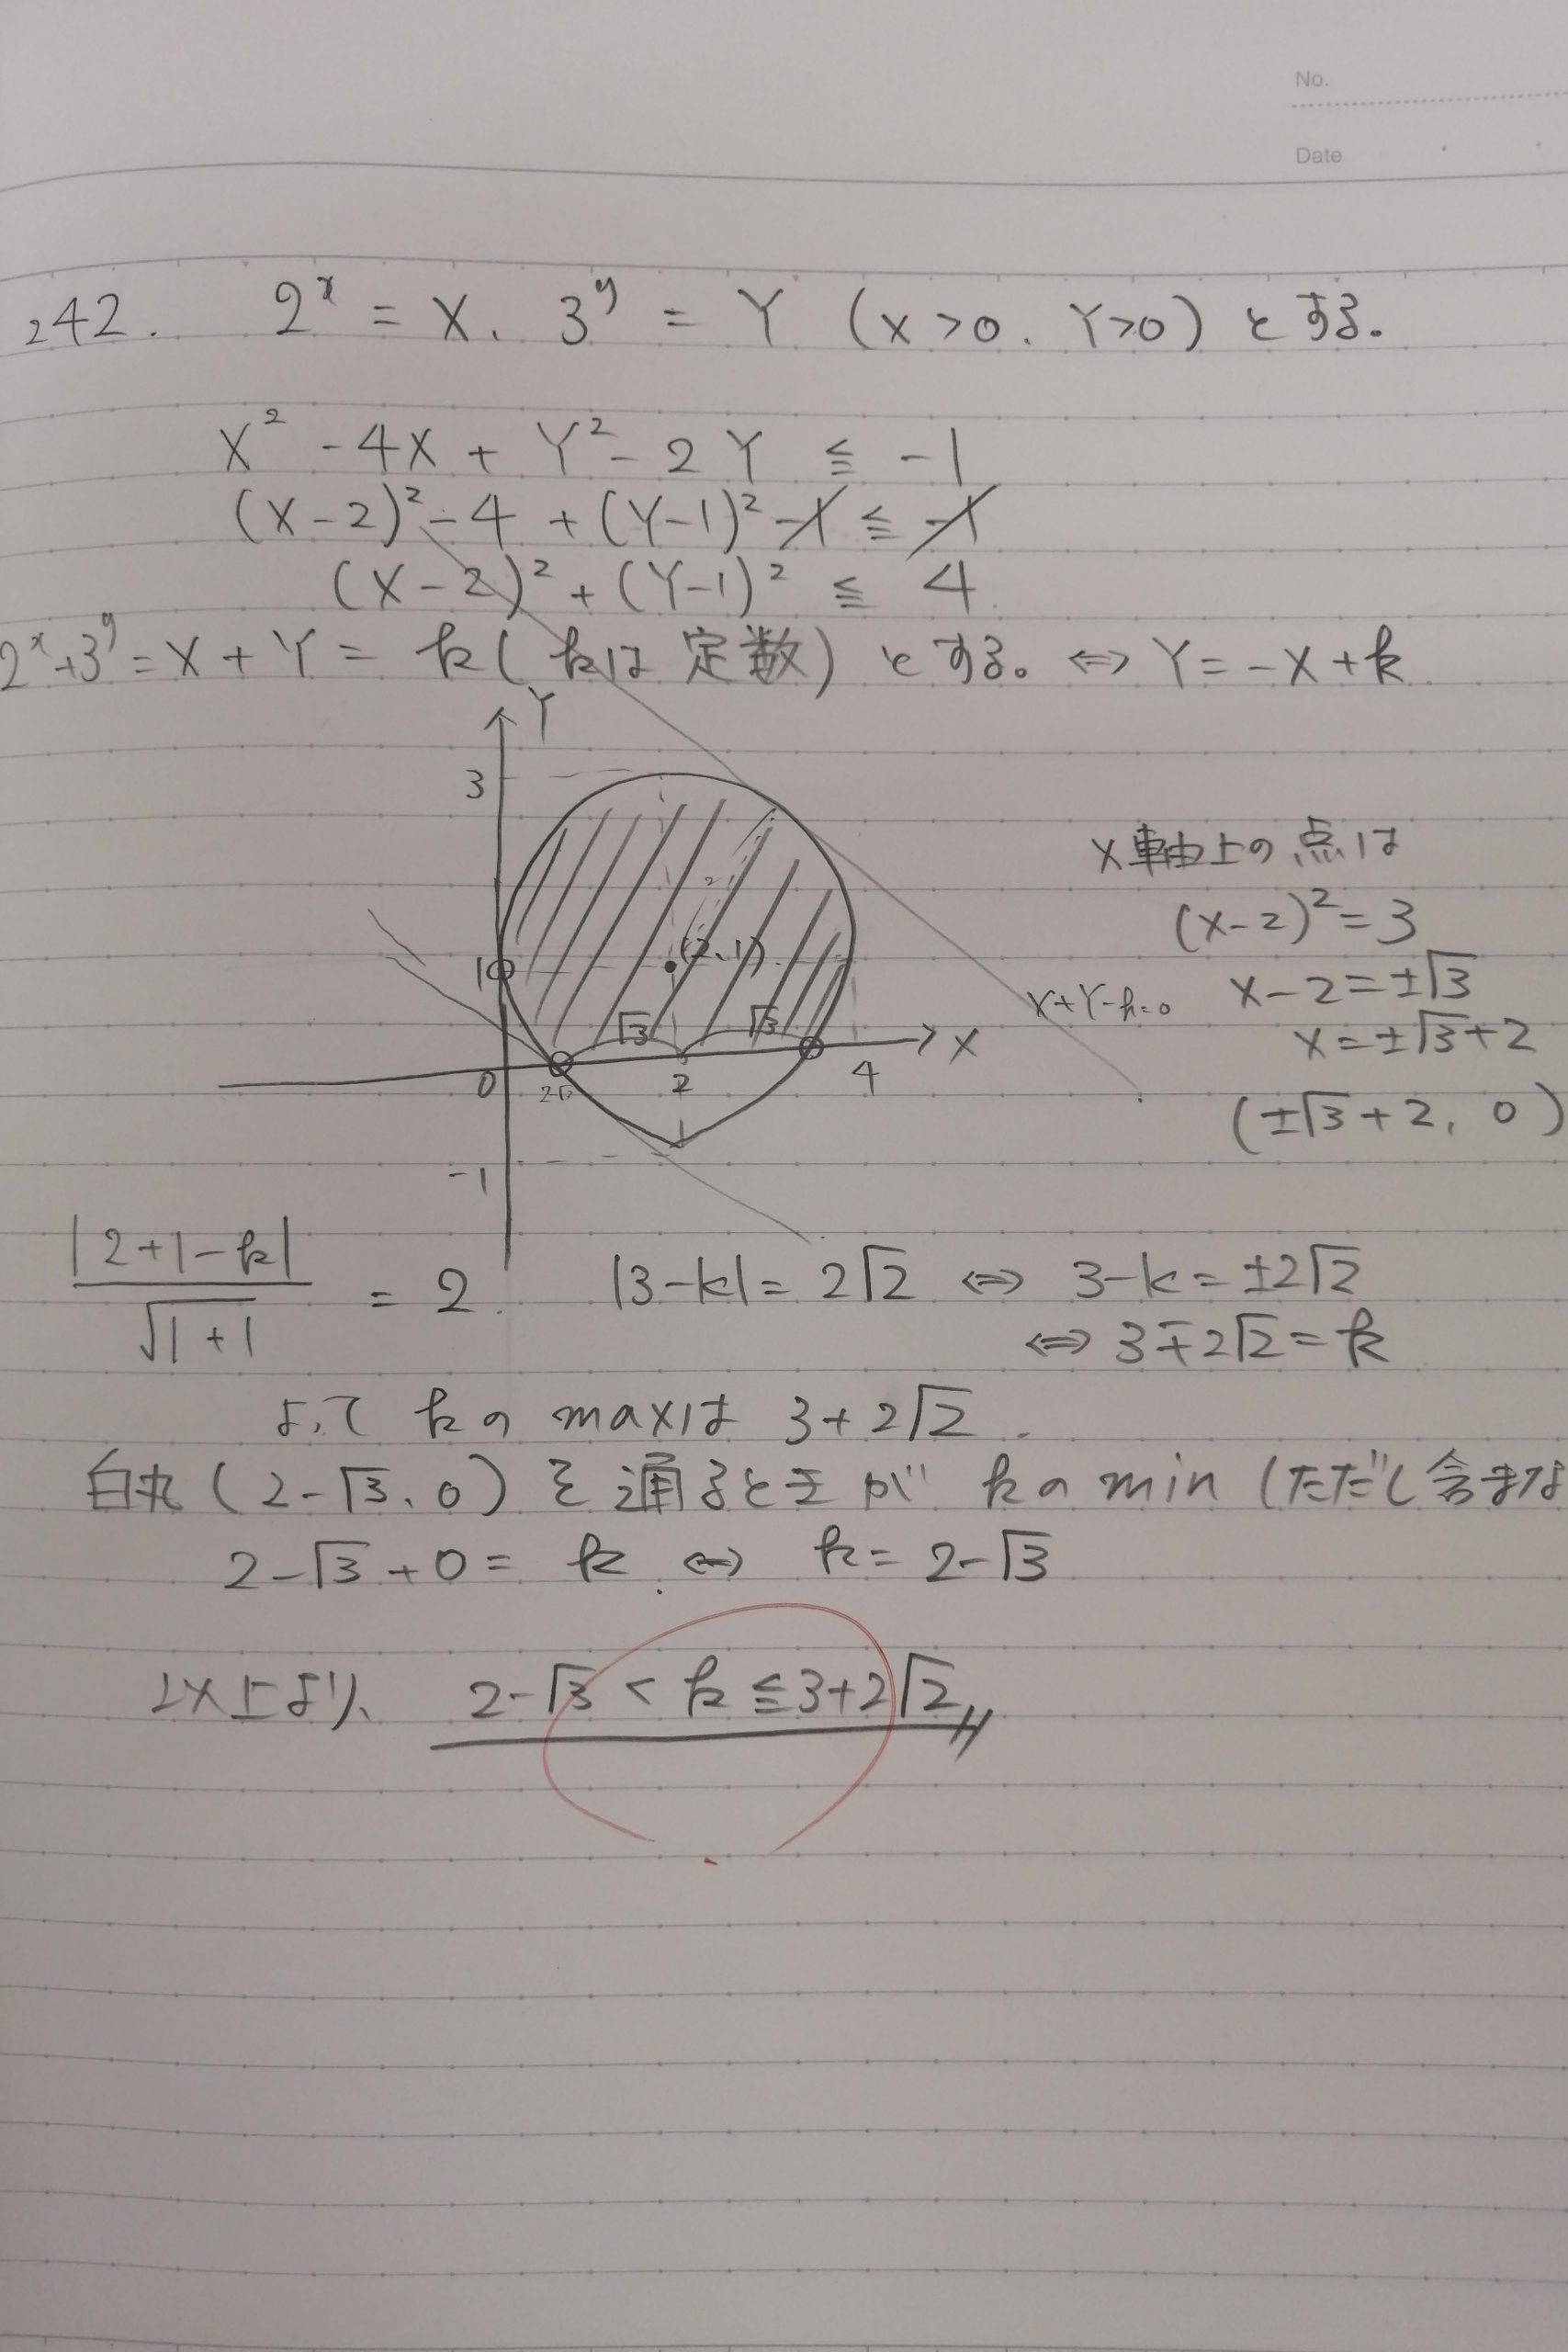 No.
Date
242. 2^x = X、3^y = Y (X>0、Y>0) とする。
X² - 4X + Y² - 2Y ≦ -1
(X-2)² - 4 + (Y-1)² - 1 ≦ -1
(X-2)² + (Y-1)² ≦ 4
2^x+3^y = X + Y = k (kは定数) とする。 ⇔ Y = -X + k
Y
3
(2、1)
1
√3 √3
X
0 2 4
-1
X+Y-k=0
X軸上の点は
(X-2)² = 3
X-2 = ±√3
X = ±√3+2
(±√3+2, 0)
|2+1-k| / √1+1 = 2 |3-k| = 2√2 ⇔ 3-k = ±2√2
⇔ 3∓2√2 = k
よって kの maxは 3+2√2
白丸 (2-√3、0) を通るときが kの min (ただし含まな
2-√3+0 = k ⇔ k = 2-√3
以上より、 2-√3 < k ≦ 3+2√2